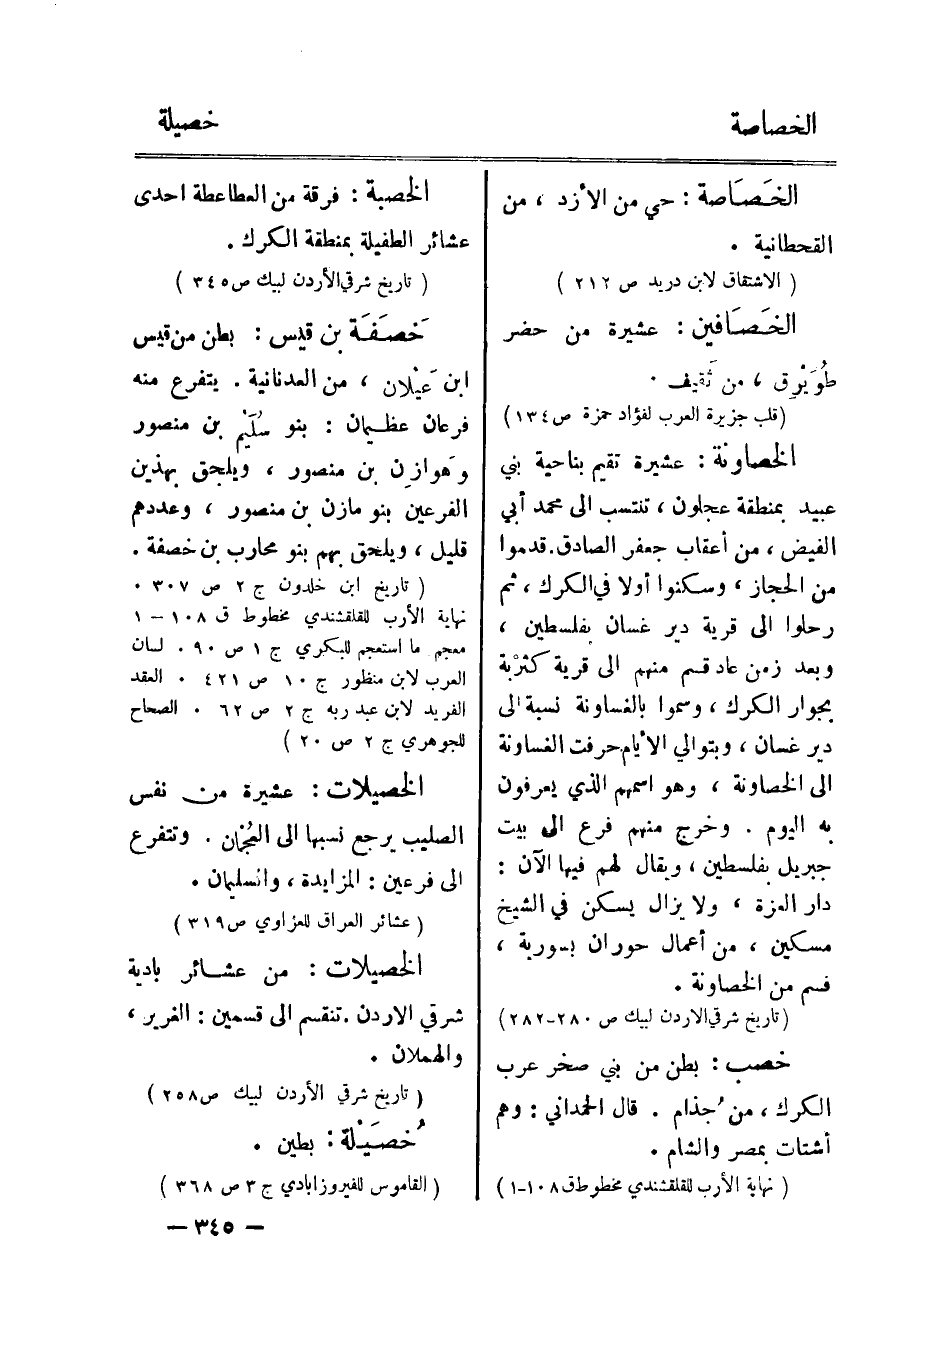 الخصاصة
خصيلة
الخَصَاصة : حي من الأزد ، من
القحطانية .
( الاشتقاق لابن دريد ص ٢١٢ )
الخَصَافين : عشيرة من حضر
طُوَيْرِق ، من ثَقيف .
(قلب جزيرة العرب لفؤاد حمزة ص ١٣٤)
الخصاونة : عشيرة تقيم بناحية بني
عبيد بمنطقة عجلون ، تنتسب الى محمد أبي
الفيض ، من أعقاب جعفر الصادق.قدموا
من الحجاز ، وسكنوا أولا في الكرك ، ثم
رحلوا الى قرية دير غسان بفلسطين ،
وبعد زمن عاد قسم منهم الى قرية كثْرَبة
بجوار الكرك ، وسموا بالغساونة نسبة الى
دير غسان ، وبتوالي الأيام حرفت الغساونة
الى الخصاونة ، وهو اسمهم الذي يعرفون
به اليوم . وخرج منهم فرع الى بيت
جبريل بفلسطين ، ويقال لهم فيها الآن :
دار العزة ، ولا يزال يسكن في الشيخ
مسكين ، من أعمال حوران بسورية ،
قسم من الخصاونة .
(تاريخ شرقي الاردن لبيك ص ٢٨٠-٢٨٢)
خصب : بطن من بني صخر عرب
الكرك ، من جُذام . قال الحمداني : وهم
أشتات بمصر والشام .
( نهاية الأرب للقلقشندي مخطوط ق ١٠٨-١)
الخصبة : فرقة من العطاعطة احدى
عشائر الطفيلة بمنطقة الكرك .
( تاريخ شرقي الأردن لبيك ص ٣٤٥ )
خَصَفَة بن قيس : بطن من قيس
ابن عَيْلان ، من العدنانية . يتفرع منه
فرعان عظيمان : بنو سُلَيْم بن منصور
وهَوازِن بن منصور ، ويلحق بهذين
الفرعين بنو مازن بن منصور ، وعددهم
قليل ، ويلحق بهم بنو محارب بن خصفة .
( تاريخ ابن خلدون ج ٢ ص ٣٠٧ .
نهاية الأرب للقلقشندي مخطوط ق ١٠٨ – ١
معجم ما استعجم للبكري ج ١ ص ٩٠ . لسان
العرب لابن منظور ج ١٠ ص ٤٢١ . العقد
الفريد لابن عبد ربه ج ٢ ص ٦٢ . الصحاح
للجوهري ج ٢ ص ٢٠ )
الخصيلات : عشيرة من نفس
الصليب يرجع نسبها الى العُجْمان . وتتفرع
الى فرعين : المزايدة ، والسليمان .
( عشائر العراق للعزاوي ص ٣١٩ )
الخصيلات : من عشائر بادية
شرقي الاردن . تنقسم الى قسمين : الغرير ،
والهملان .
( تاريخ شرقي الأردن لبيك ص ٢٥٨ )
خُصَيْلة : بطين .
( القاموس للفيروزابادي ج ٣ ص ٣٦٨ )
— ٣٤٥ —